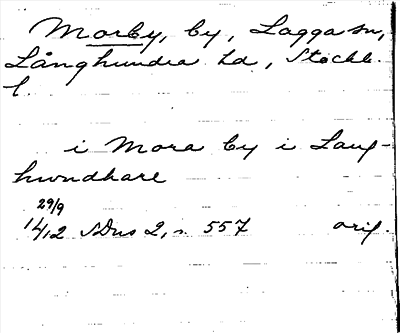 Morby, by, Lagga sn,
Långhundra hd, Stockh.
l.
i Mora by i Lang-
hwndhare
29/9
1412 SDns 2, s. 557 orig.